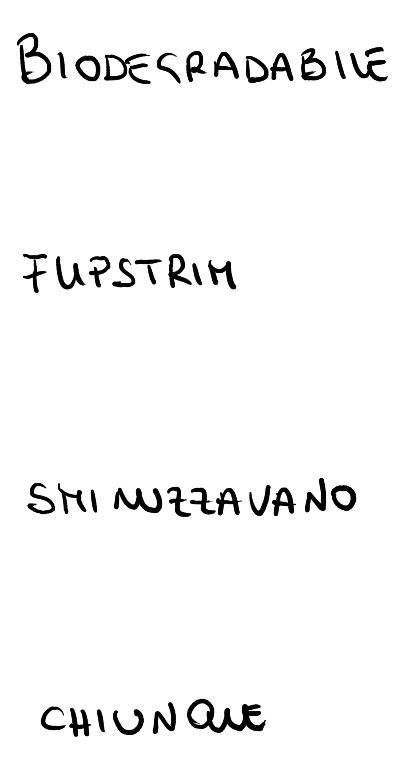 BIODEGRADABILE
FUPSTRIM
SMINUZZAVANO
CHIUNQUE